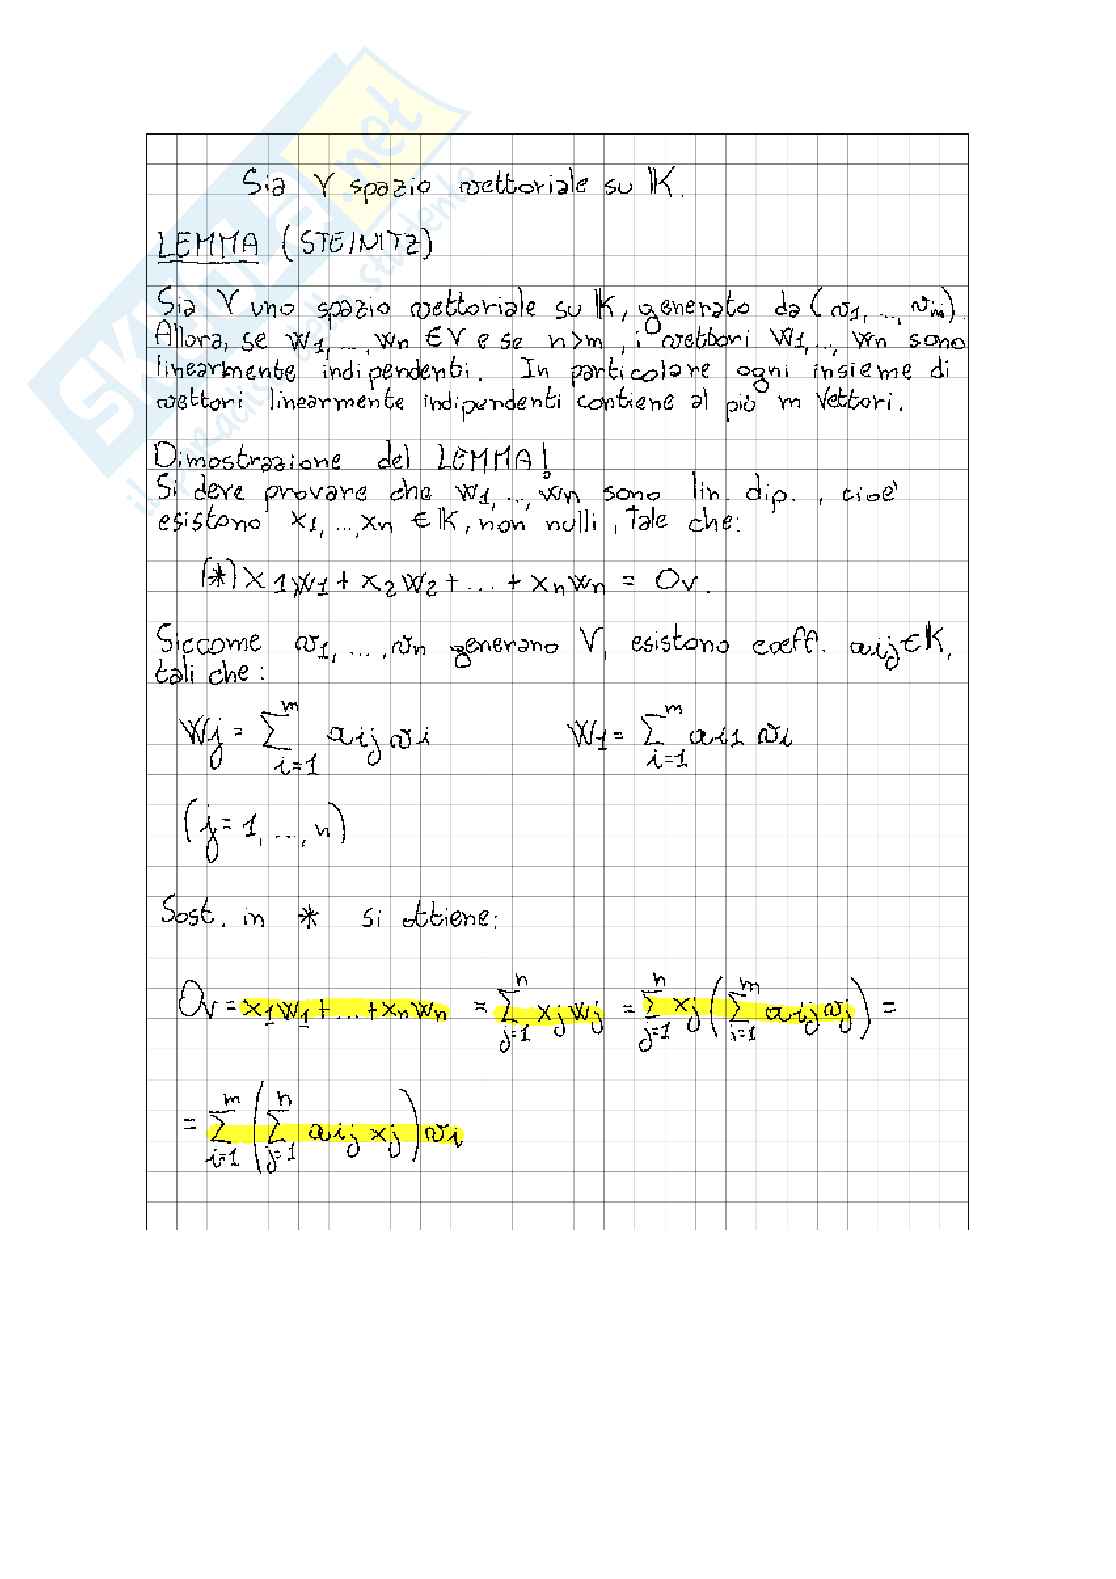 Sia V spazio vettoriale su K.
LEMMA (STEINITZ)
Sia V uno spazio vettoriale su K, generato da (v1, ..., vm).
Allora, se w1, ..., wn ∈ V e se n>m, i vettori w1, ..., wn sono
linearmente indipendenti. In particolare ogni insieme di
vettori linearmente indipendenti contiene al più m vettori.
Dimostrazione del LEMMA!
Si deve provare che w1, ..., wn sono lin. dip., cioè
esistono x1, ..., xn ∈ K, non nulli, tale che:
(*) x1w1 + x2w2 + ... + xnwn = Ov.
Siccome v1, ..., vn generano V, esistono coeff. aij ∈ K,
tali che:
wj = ∑_{i=1}^{m} aij vi    w1 = ∑_{i=1}^{m} ai1 vi
(j = 1, ..., n)
Sost. in * si ottiene:
Ov = x1w1 + ... + xnwn = ∑_{j=1}^{n} xj wj = ∑_{j=1}^{n} xj (∑_{i=1}^{m} aij vj) =
= ∑_{i=1}^{m} (∑_{j=1}^{n} aij xj) vi
SKUOLA.net
il paradiso dello studente